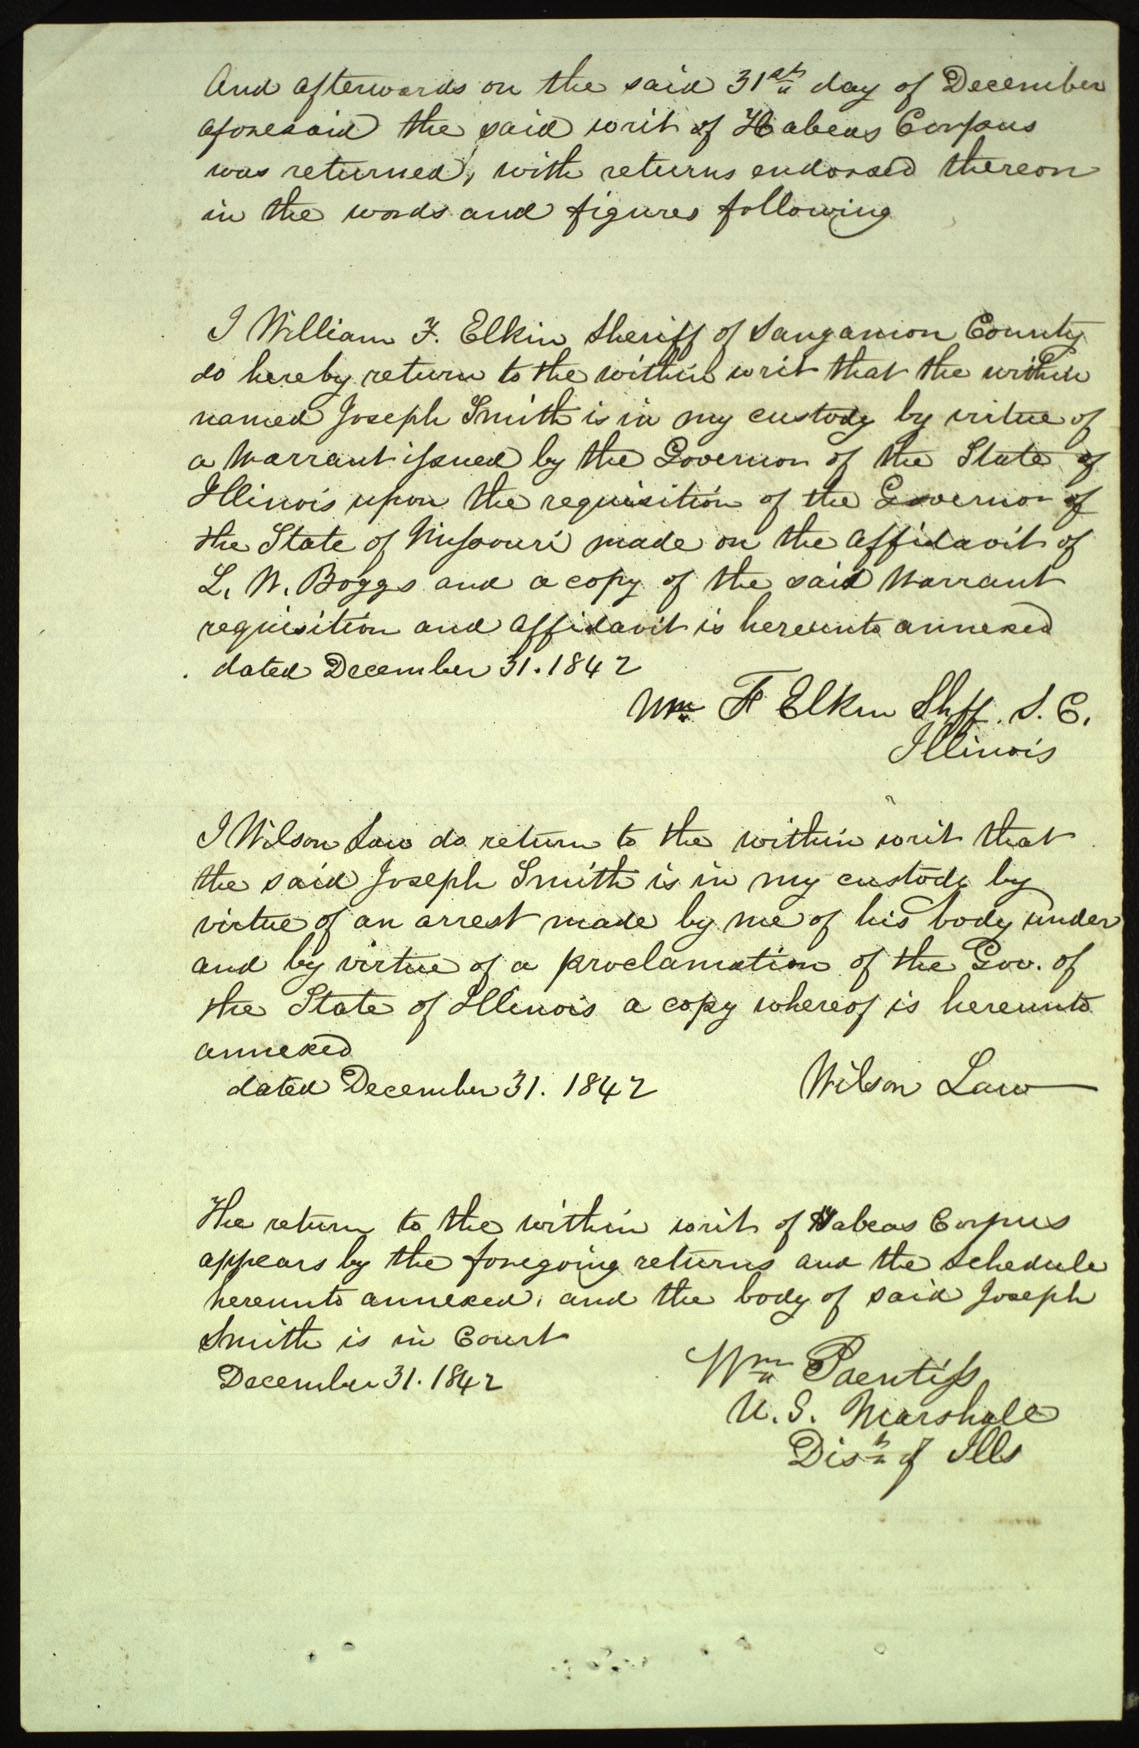 And afterwards on the said 31st day of December
aforesaid the said writ of Habeas Corpus
was returned, with returns endorsed thereon
in the words and figures following
I William F. Elkin Sheriff of Sangamon County
do hereby return to the within writ that the within
named Joseph Smith is in my custody by virtue of
a Warrant issued by the Governor of the State of
Illinois upon the requisition of the Governor of
the State of Missouri made on the affidavit of
L. W. Boggs and a copy of the said Warrant
requisition and affidavit is hereunto annexed
dated December 31. 1842
Wm F Elkin Shff. S. C.
Illinois
I Wilson Law do return to the within writ that
the said Joseph Smith is in my custody by
virtue of an arrest made by me of his body under
and by virtue of a proclamation of the Gov. of
the State of Illinois a copy whereof is hereunto
annexed
dated December 31. 1842 Wilson Law
The return to the within writ of Habeas Corpus
appears by the foregoing returns and the schedule
hereunto annexed, and the body of said Joseph
Smith is in Court
December 31. 1842
Wm Prentiss
U. S. Marshall
Dist of Ills